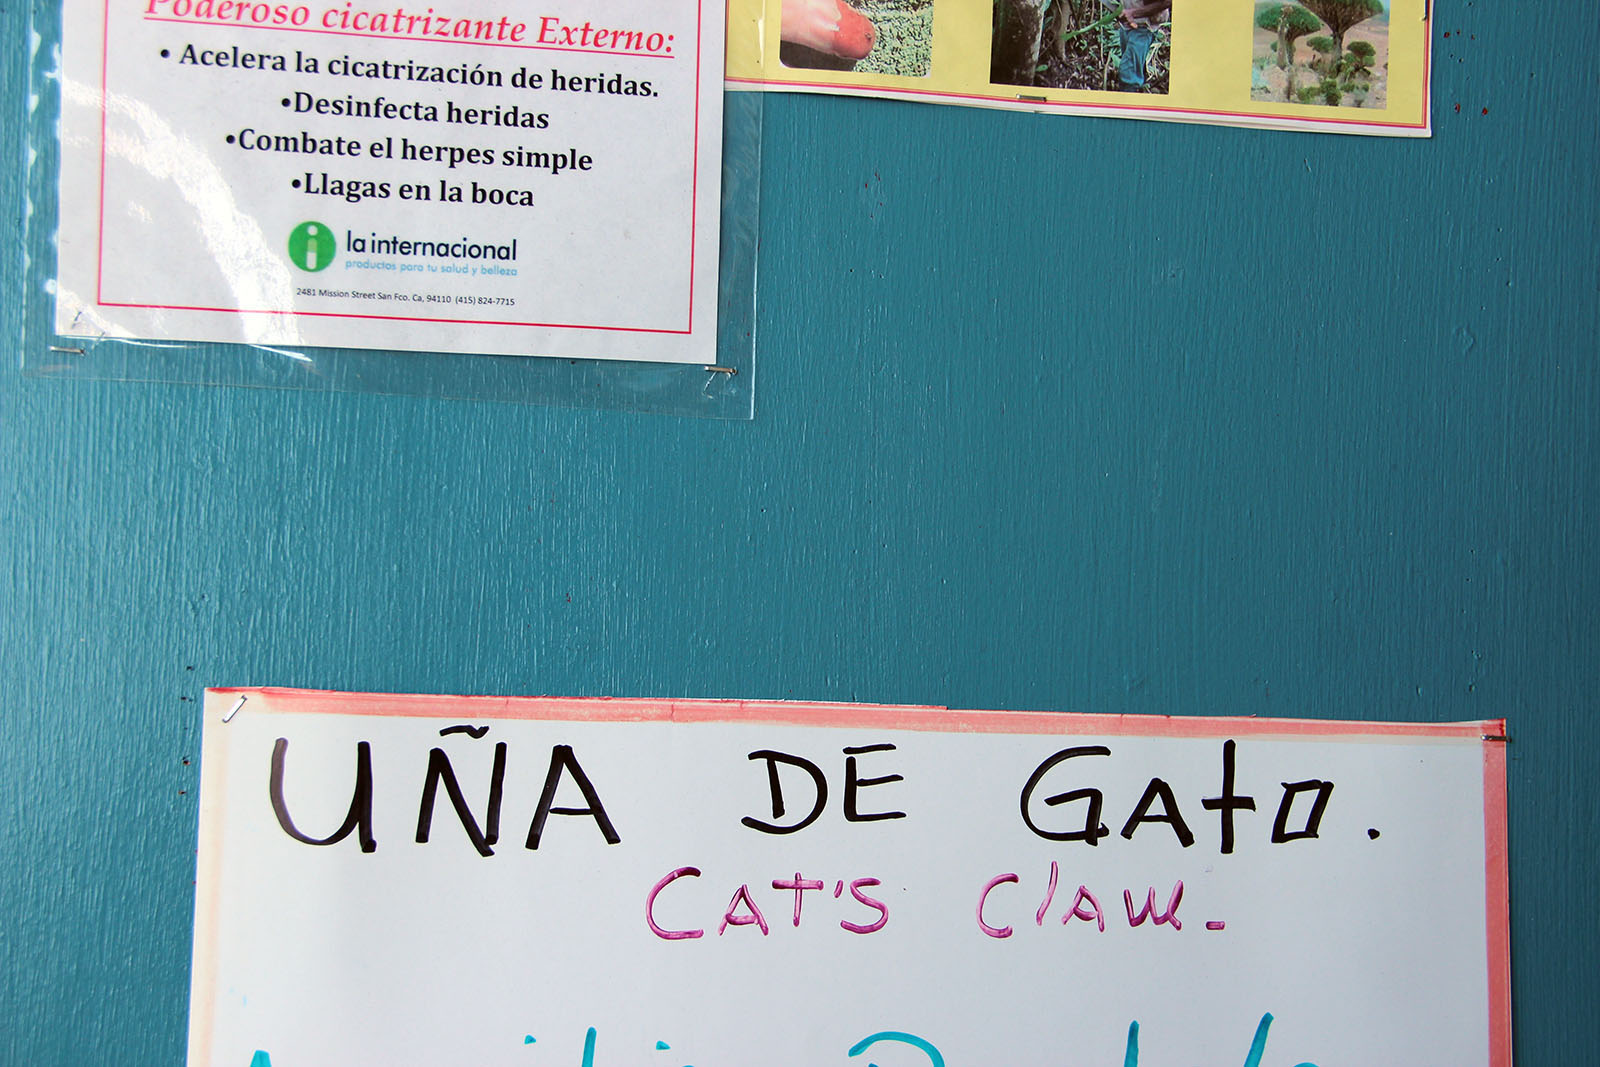 Poderoso cicatrizante Externo:
• Acelera la cicatrización de heridas.
•Desinfecta heridas
•Combate el herpes simple
•Llagas en la boca
la internacional
productos para tu salud y belleza
2481 Mission Street San Fco. Ca, 94110 (415) 824-7715
UÑA DE GATO.
CAT'S CLAW.